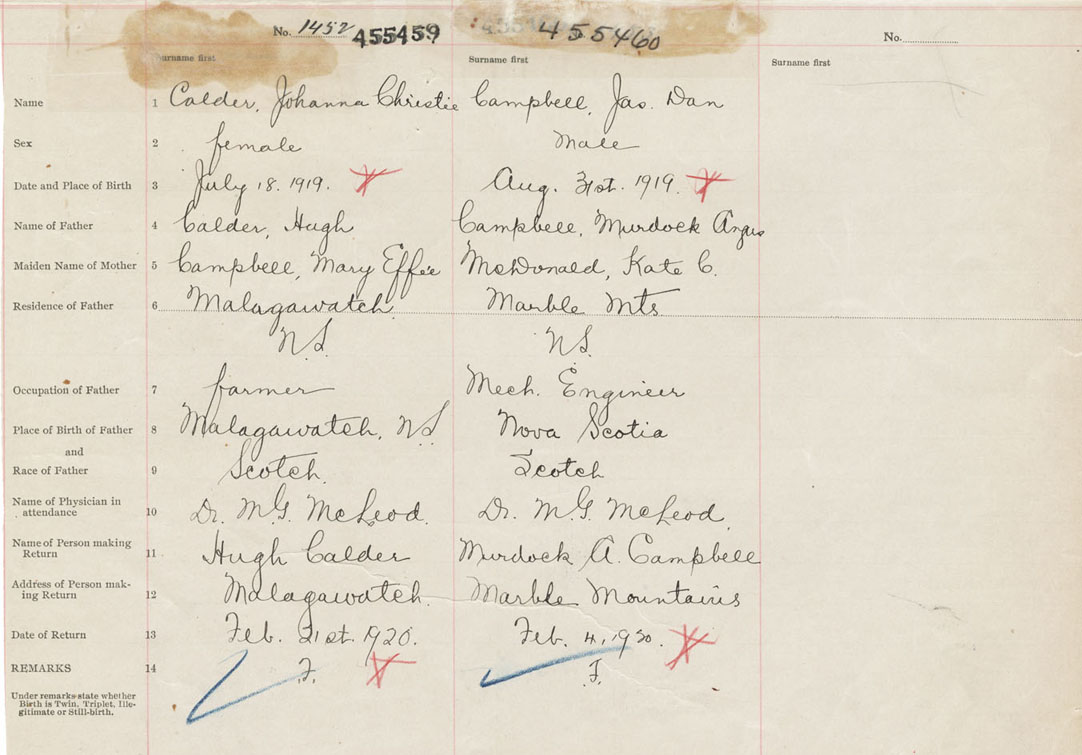 No. 1452 455459 455460 No.
Surname first Surname first Surname first
Name 1 Calder, Johanna Christie Campbell, Jas. Dan
Sex 2 female Male
Date and Place of Birth 3 July 18. 1919. Aug. 31st. 1919.
Name of Father 4 Calder, Hugh Campbell, Murdock Angus
Maiden Name of Mother 5 Campbell, Mary Effie McDonald, Kate C.
Residence of Father 6 Malagawatch Marble Mts
N.S. N.S.
Occupation of Father 7 farmer Mech. Engineer
Place of Birth of Father 8 Malagawatch, N.S Nova Scotia
and
Race of Father 9 Scotch. Scotch
Name of Physician in
attendance 10 Dr. M.G. McLeod. Dr. M.G. McLeod.
Name of Person making
Return 11 Hugh Calder Murdock A. Campbell
Address of Person mak-
ing Return 12 Malagawatch. Marble Mountains
Date of Return 13 Feb. 21st. 1920. Feb. 4, 1920.
REMARKS 14 F. F.
Under remarks state whether
Birth is Twin, Triplet, Ille-
gitimate or Still-birth.